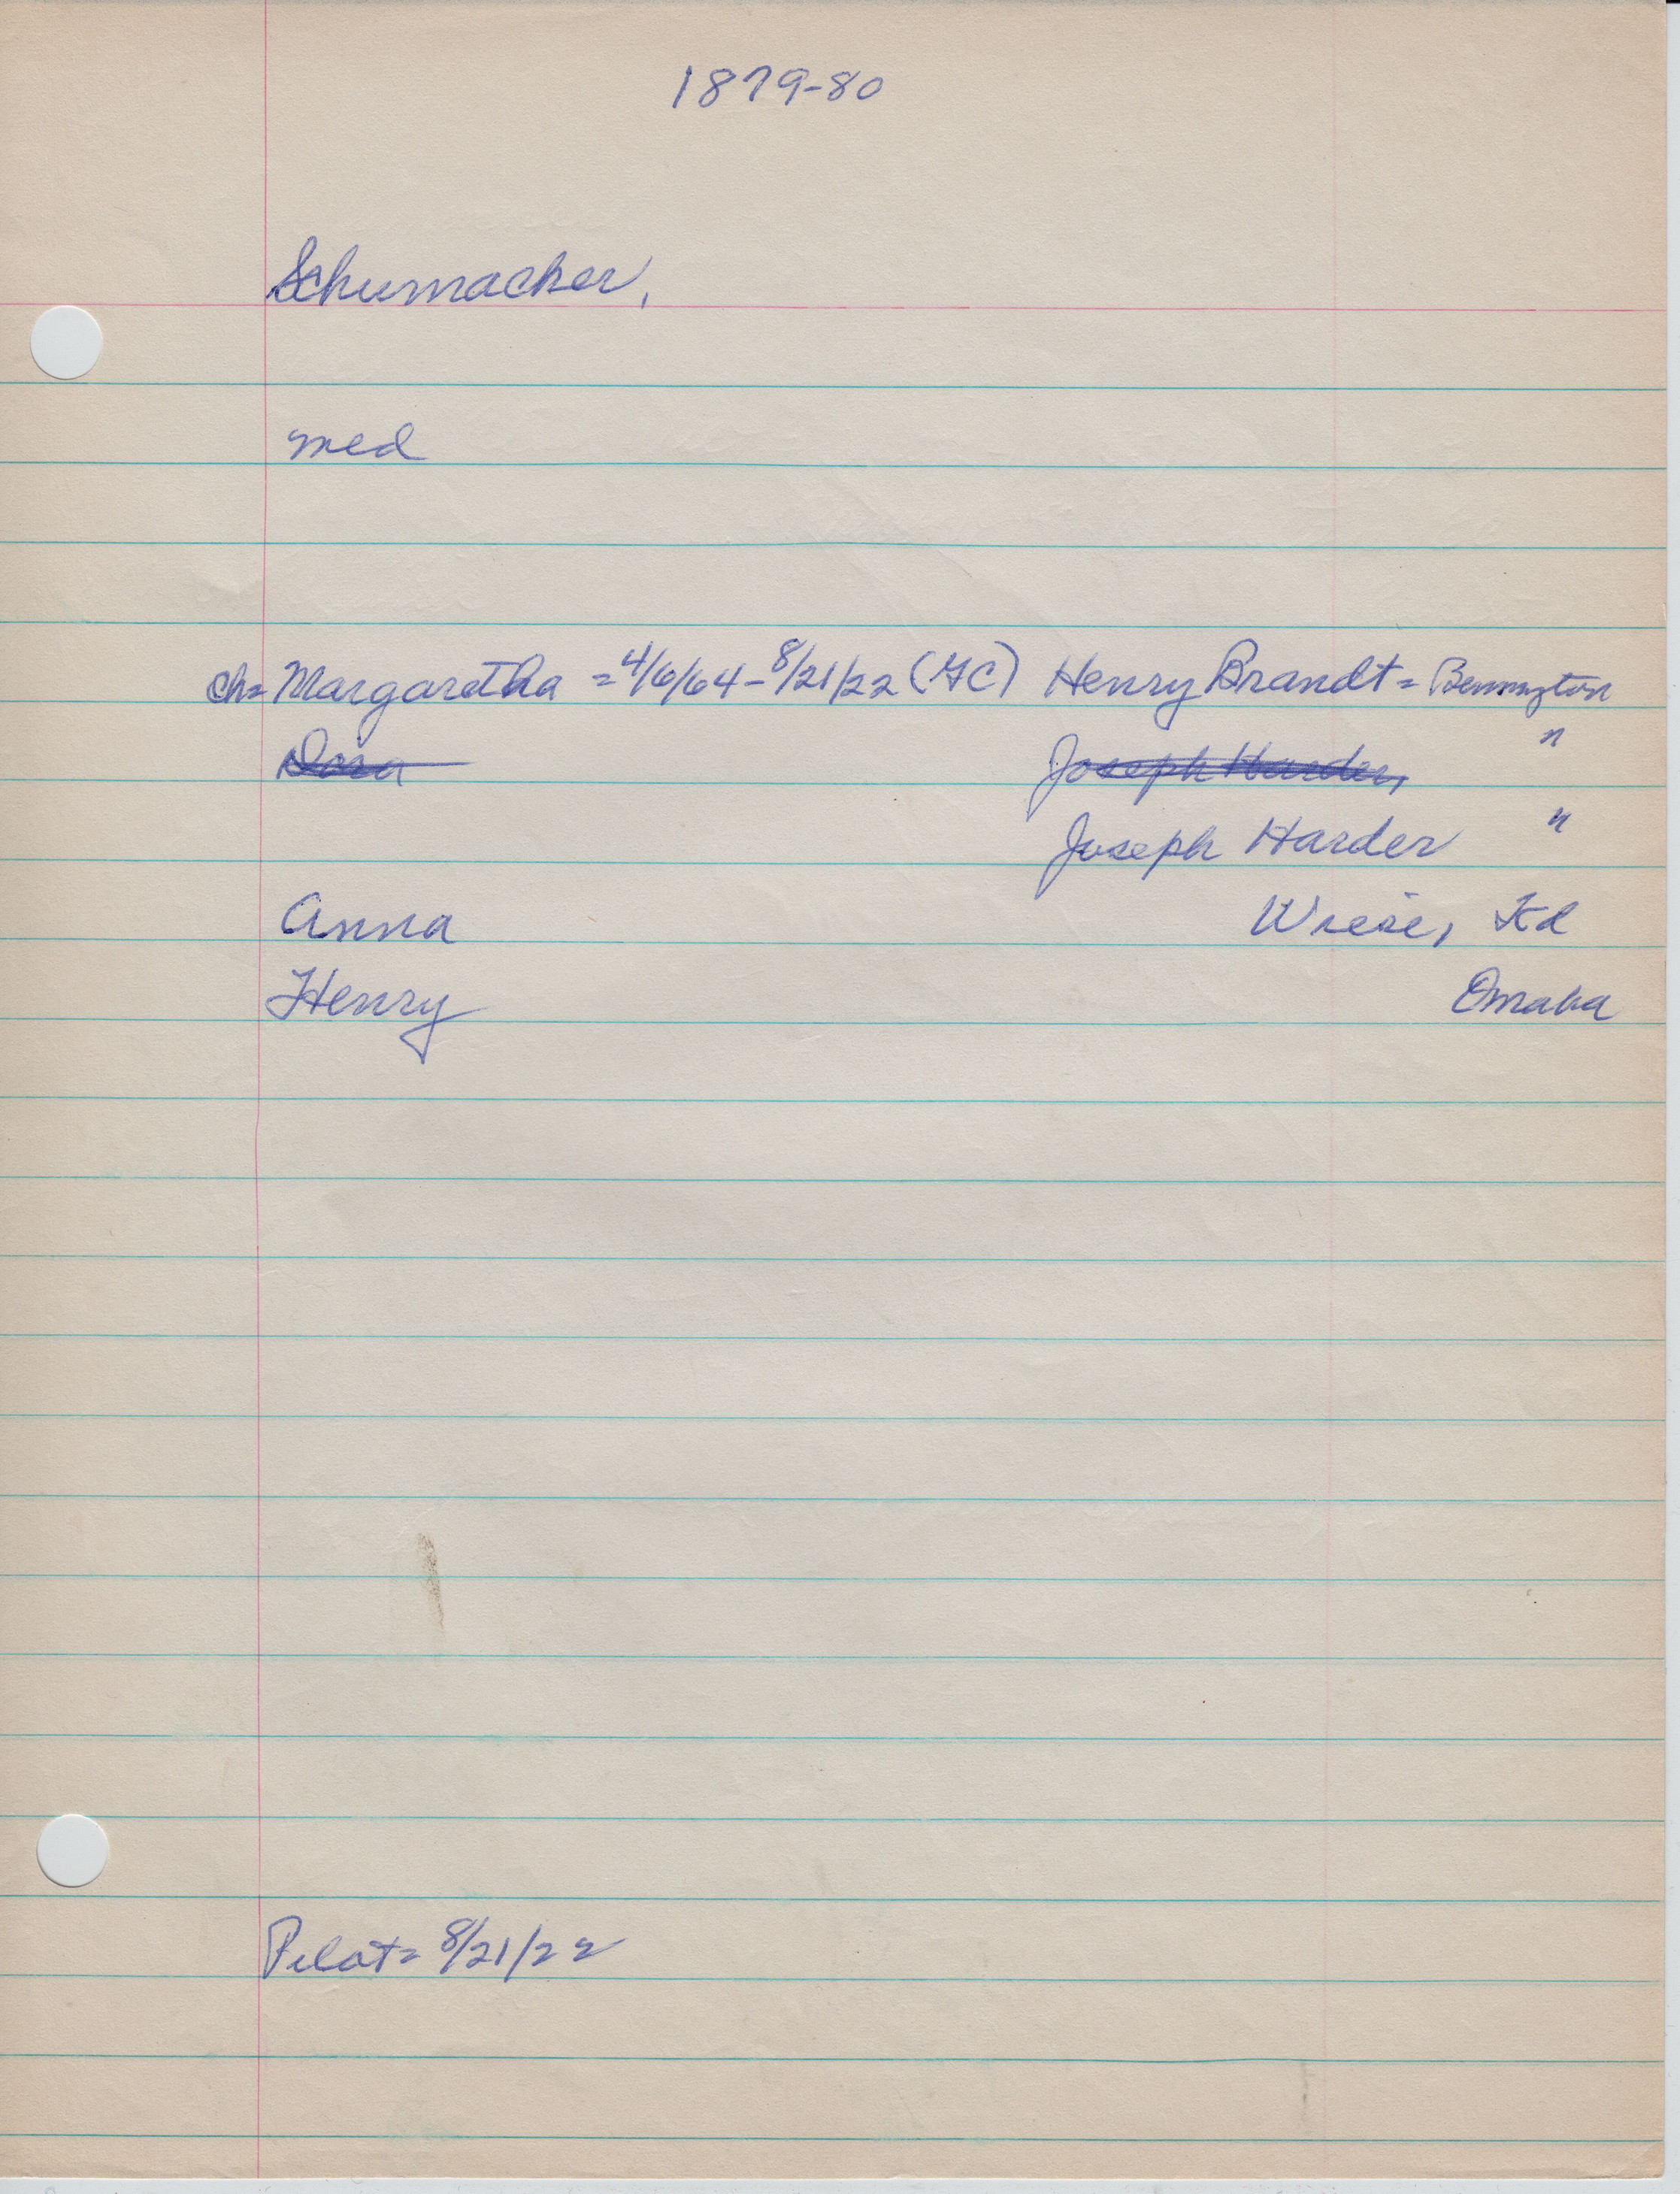 1879-80
Schumacher,
med
ch= Margaretha = 4/6/64 - 8/21/22 (GC) Henry Brandt = Bennington
Dora Joseph Harder, "
Joseph Harder "
Anna Wiese, Kd
Henry Omaha
Pilot = 8/21/22